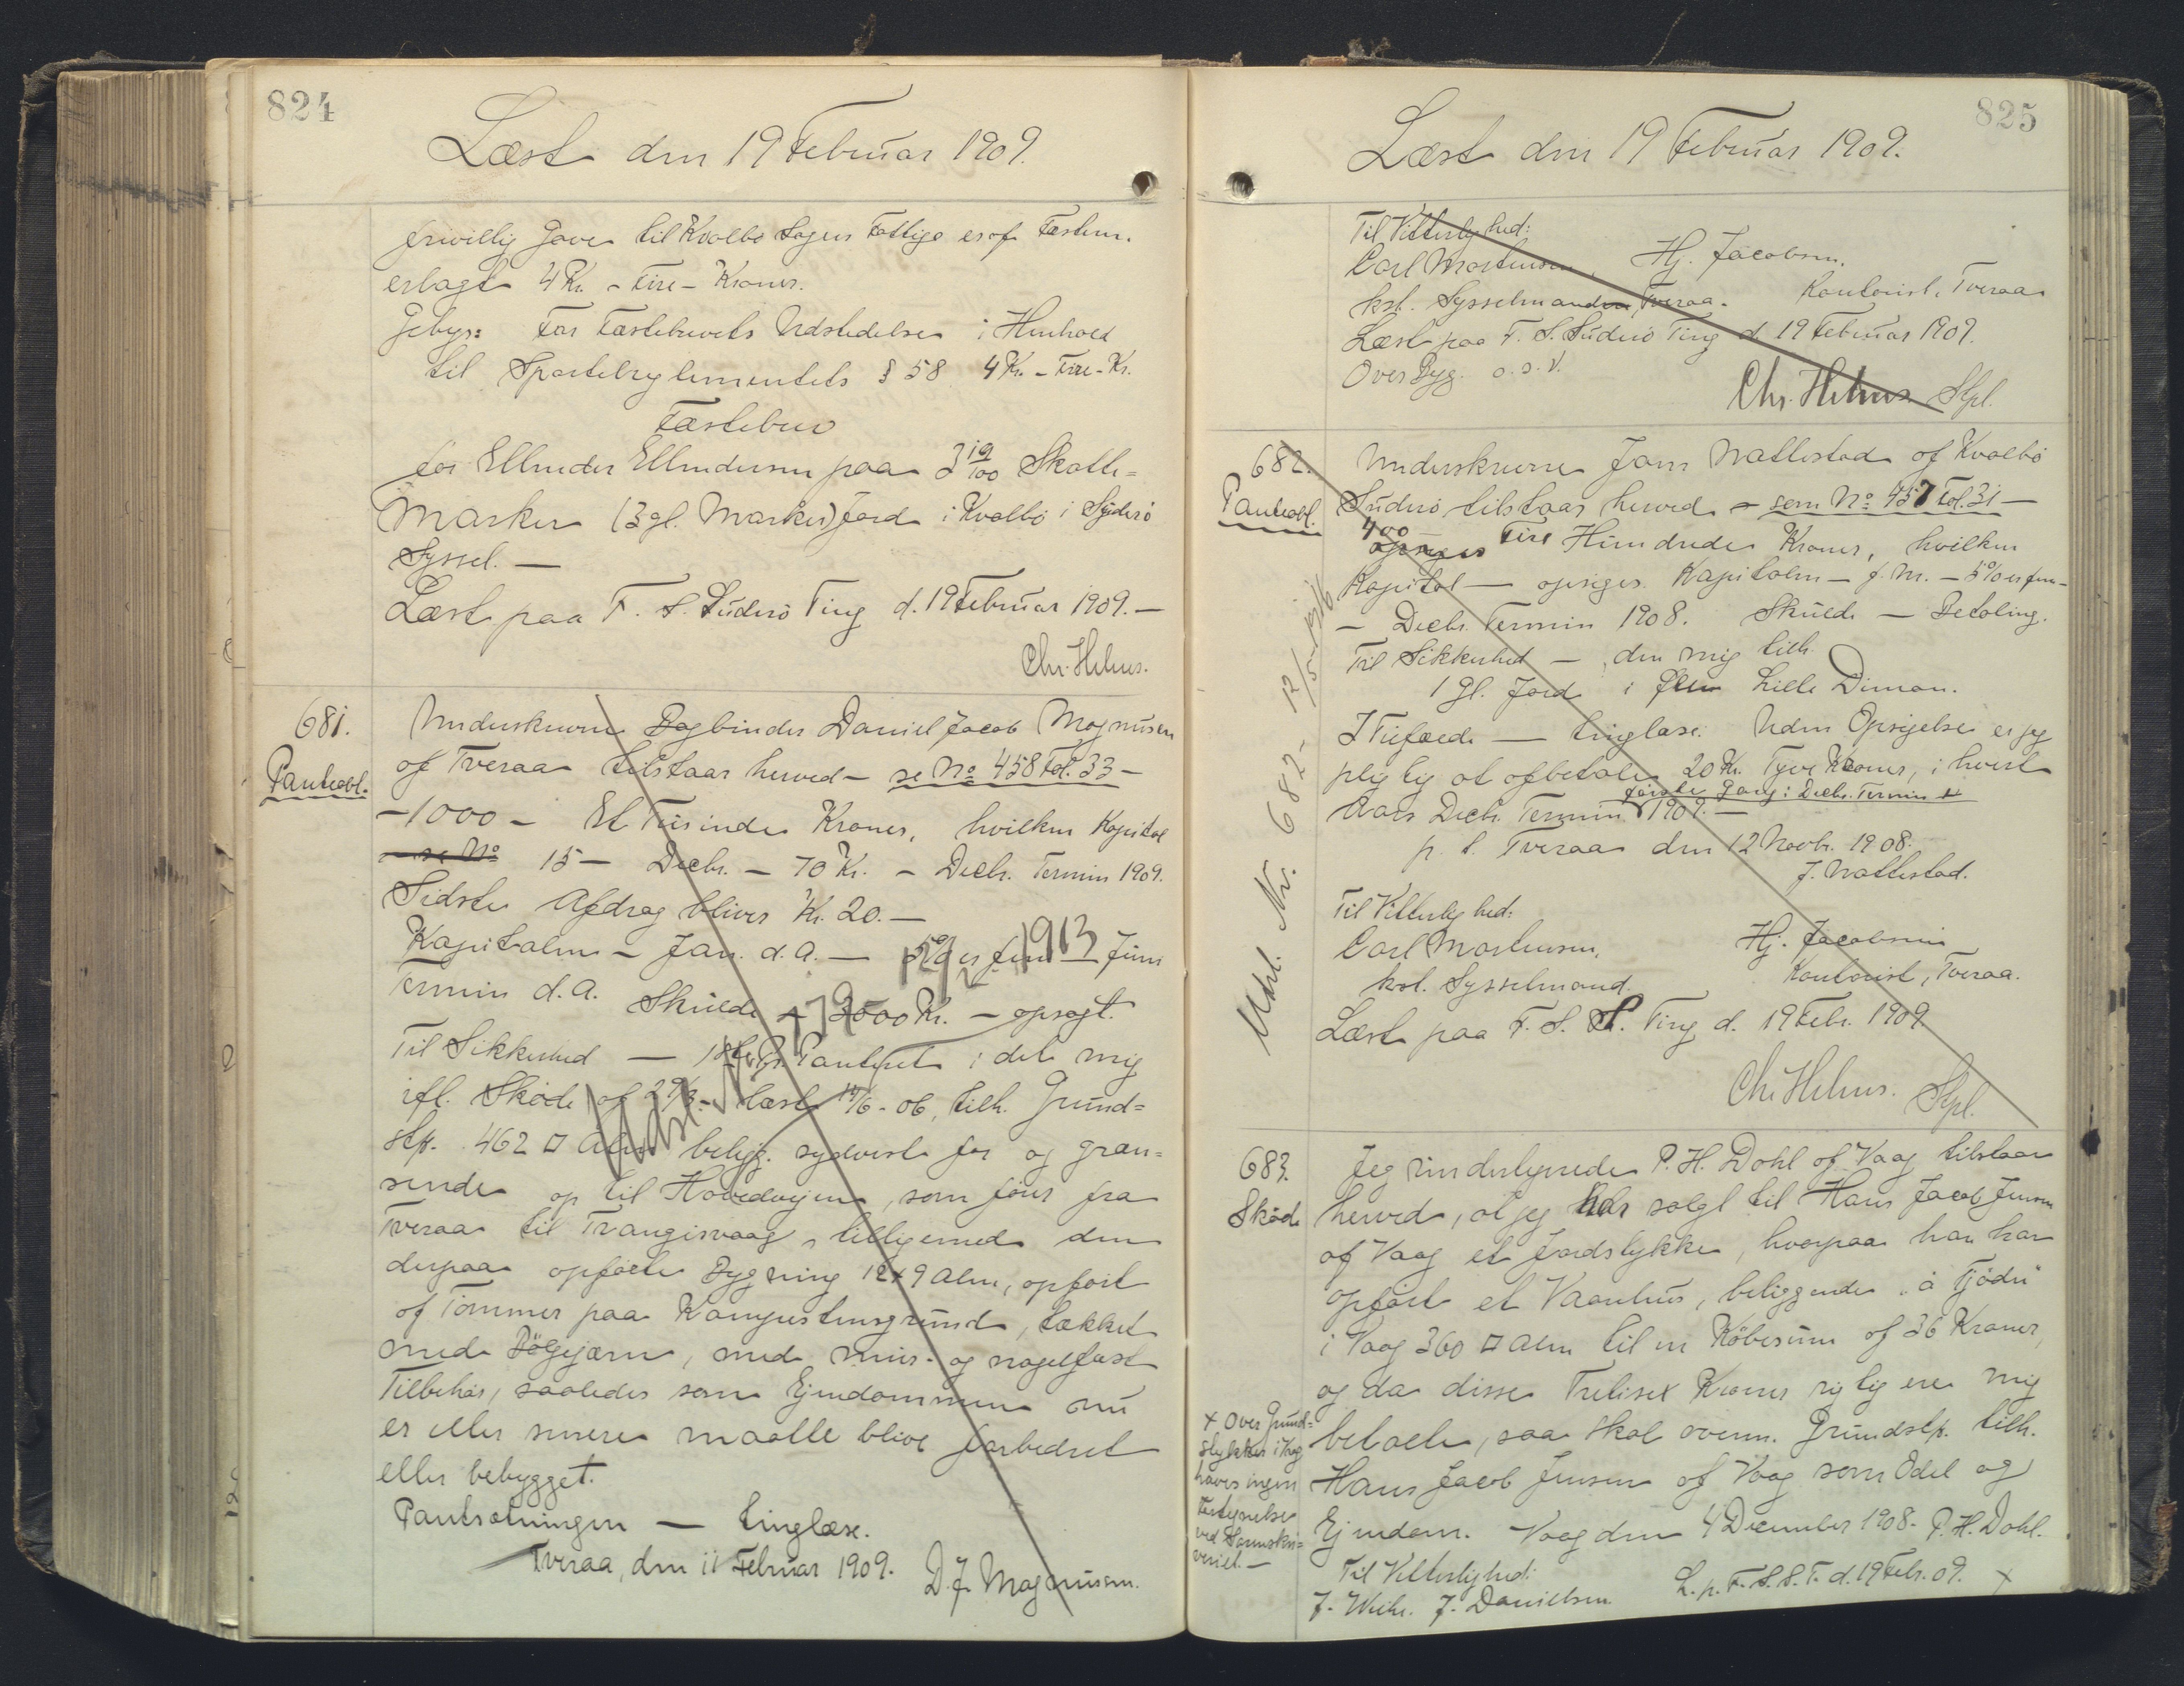 824
Læst den 19 Februar 1909.
frivillig Gave til Kvalbø Sogns Fattige er af Fæstern.
erlagt 4 Kr. - Fire - Kroner.
Gebyr: For Fæstebrevets Udstedelse i Henhold
til Sportelreglementets § 58 4 Kr. - Fire - Kr.
Fæstebrev
for Ellinder Ellindersen paa 3 19/100 Skatte=
Marker (3 gl. Marker) Jord i Kvalbø i Syderø
Syssel. —
Læst paa F. S. Suderø Ting d. 19 Februar 1909. —
Chr. Helms.
681.
Panteobl.
Underskrevne Bogbinder Daniel Jacob Magnusen
af Tveraa tilstaar herved - se No 458 Fol. 33 -
- 1000 - Et Tusinde Kroner, hvilken Kapital
- se No 15 - Decbr. - 70 Kr. - Decbr. Termin 1909.
Sidste Afdrag bliver Kr. 20. —
Kapitalen - Jan. d.A. - 5% er fem — Juni
Termin d.A. Skulde - 3500 Kr. - opsagt.
Til Sikkerhed — 1ste Pr. Panteret i det mig
ifl. Skøde af 29/3 - læst 14/6 - 06, tilh. Grund=
stk. 462 □ Alen belig. sydvest for og græn=
sende op til Hovedvejen, som fører fra
Tveraa til Trangisvaag, tilligemed den
derpaa opførte Bygning 12 x 9 Alen, opført
af Tømmer paa Kampestensgrund, tækket
med Bølgejærn, med mur- og nagelfast
Tilbehør, saaledes som Ejendommen nu
er eller senere maatte blive forbedret
eller bebygget.
Pantsætningen — tinglæse.
Tveraa, den 11 Februar 1909. D.J. Magnusen.
825
Læst den 19 Februar 1909.
Til Vitterlighed:
Carl Mortensen, Hj. Jacobsen.
kst. Sysselmand, Tveraa. Kontorist, Tveraa
Læst paa F. S. Suderø Ting d. 19 Februar 1909.
Over Byg. o.s.v.
Chr. Helms Spl.
682.
Panteobl.
Underskrevne Jans Nattestad af Kvalbø
Suderø tilstaar herved - som No 457 Fol. 31 -
400 Fire Hundrede Kroner, hvilken
Kapital — opsiges. Kapitalen - f. M. - 5% er fem -
- Decbr. Termin 1908. Skulde — Betaling.
Til Sikkerhed — den mig tilh.
1 Gl. Jord i Lille Dimon.
I Tilfælde — tinglæse. Uden Opsigelse er jeg
pligtig at afbetale 20 Kr. Tyve Kroner, i hvert
første Gang: Decbr. Termin
Aars Decbr. Termin 1909. —
p. t. Tveraa den 12 Novbr. 1908.
J. Nattestad.
Til Vitterlighed:
Carl Mortensen, Hj. Jacobsen
kst. Sysselmand. Kontorist, Tveraa.
Læst paa F. S. S. Ting d. 19 Febr. 1909.
Chr. Helms. Spl.
Udsl. Nr. 682 - 12/5 - 1916
683.
Skøde
Jeg undertegnede P. H. Dahl af Vaag tilstaar
herved, at jeg har solgt til Hans Jacob Jensen
af Vaag et Jordstykke, hvorpaa han har
opført et Vaanhus, beliggende „á Tjødn"
i Vaag 360 □ Alen til en Købesum af 36 Kroner,
og da disse Tretisex Kroner rigtig ere mig
betalte, saa skal ovenn. Grundstk. tilh.
Hans Jacob Jensen af Vaag som Odel og
Ejendom. Vaag den 4 December 1908. P. H. Dahl.
Til Vitterlighed:
J. Weihe. J. Danielsen. L. p. F. S. S. T. d. 19 Febr. 09. x
x Over Grund=
stykker i Vaag
haves ingen
Fortegnelse
ved Sorenskri=
veriet. —